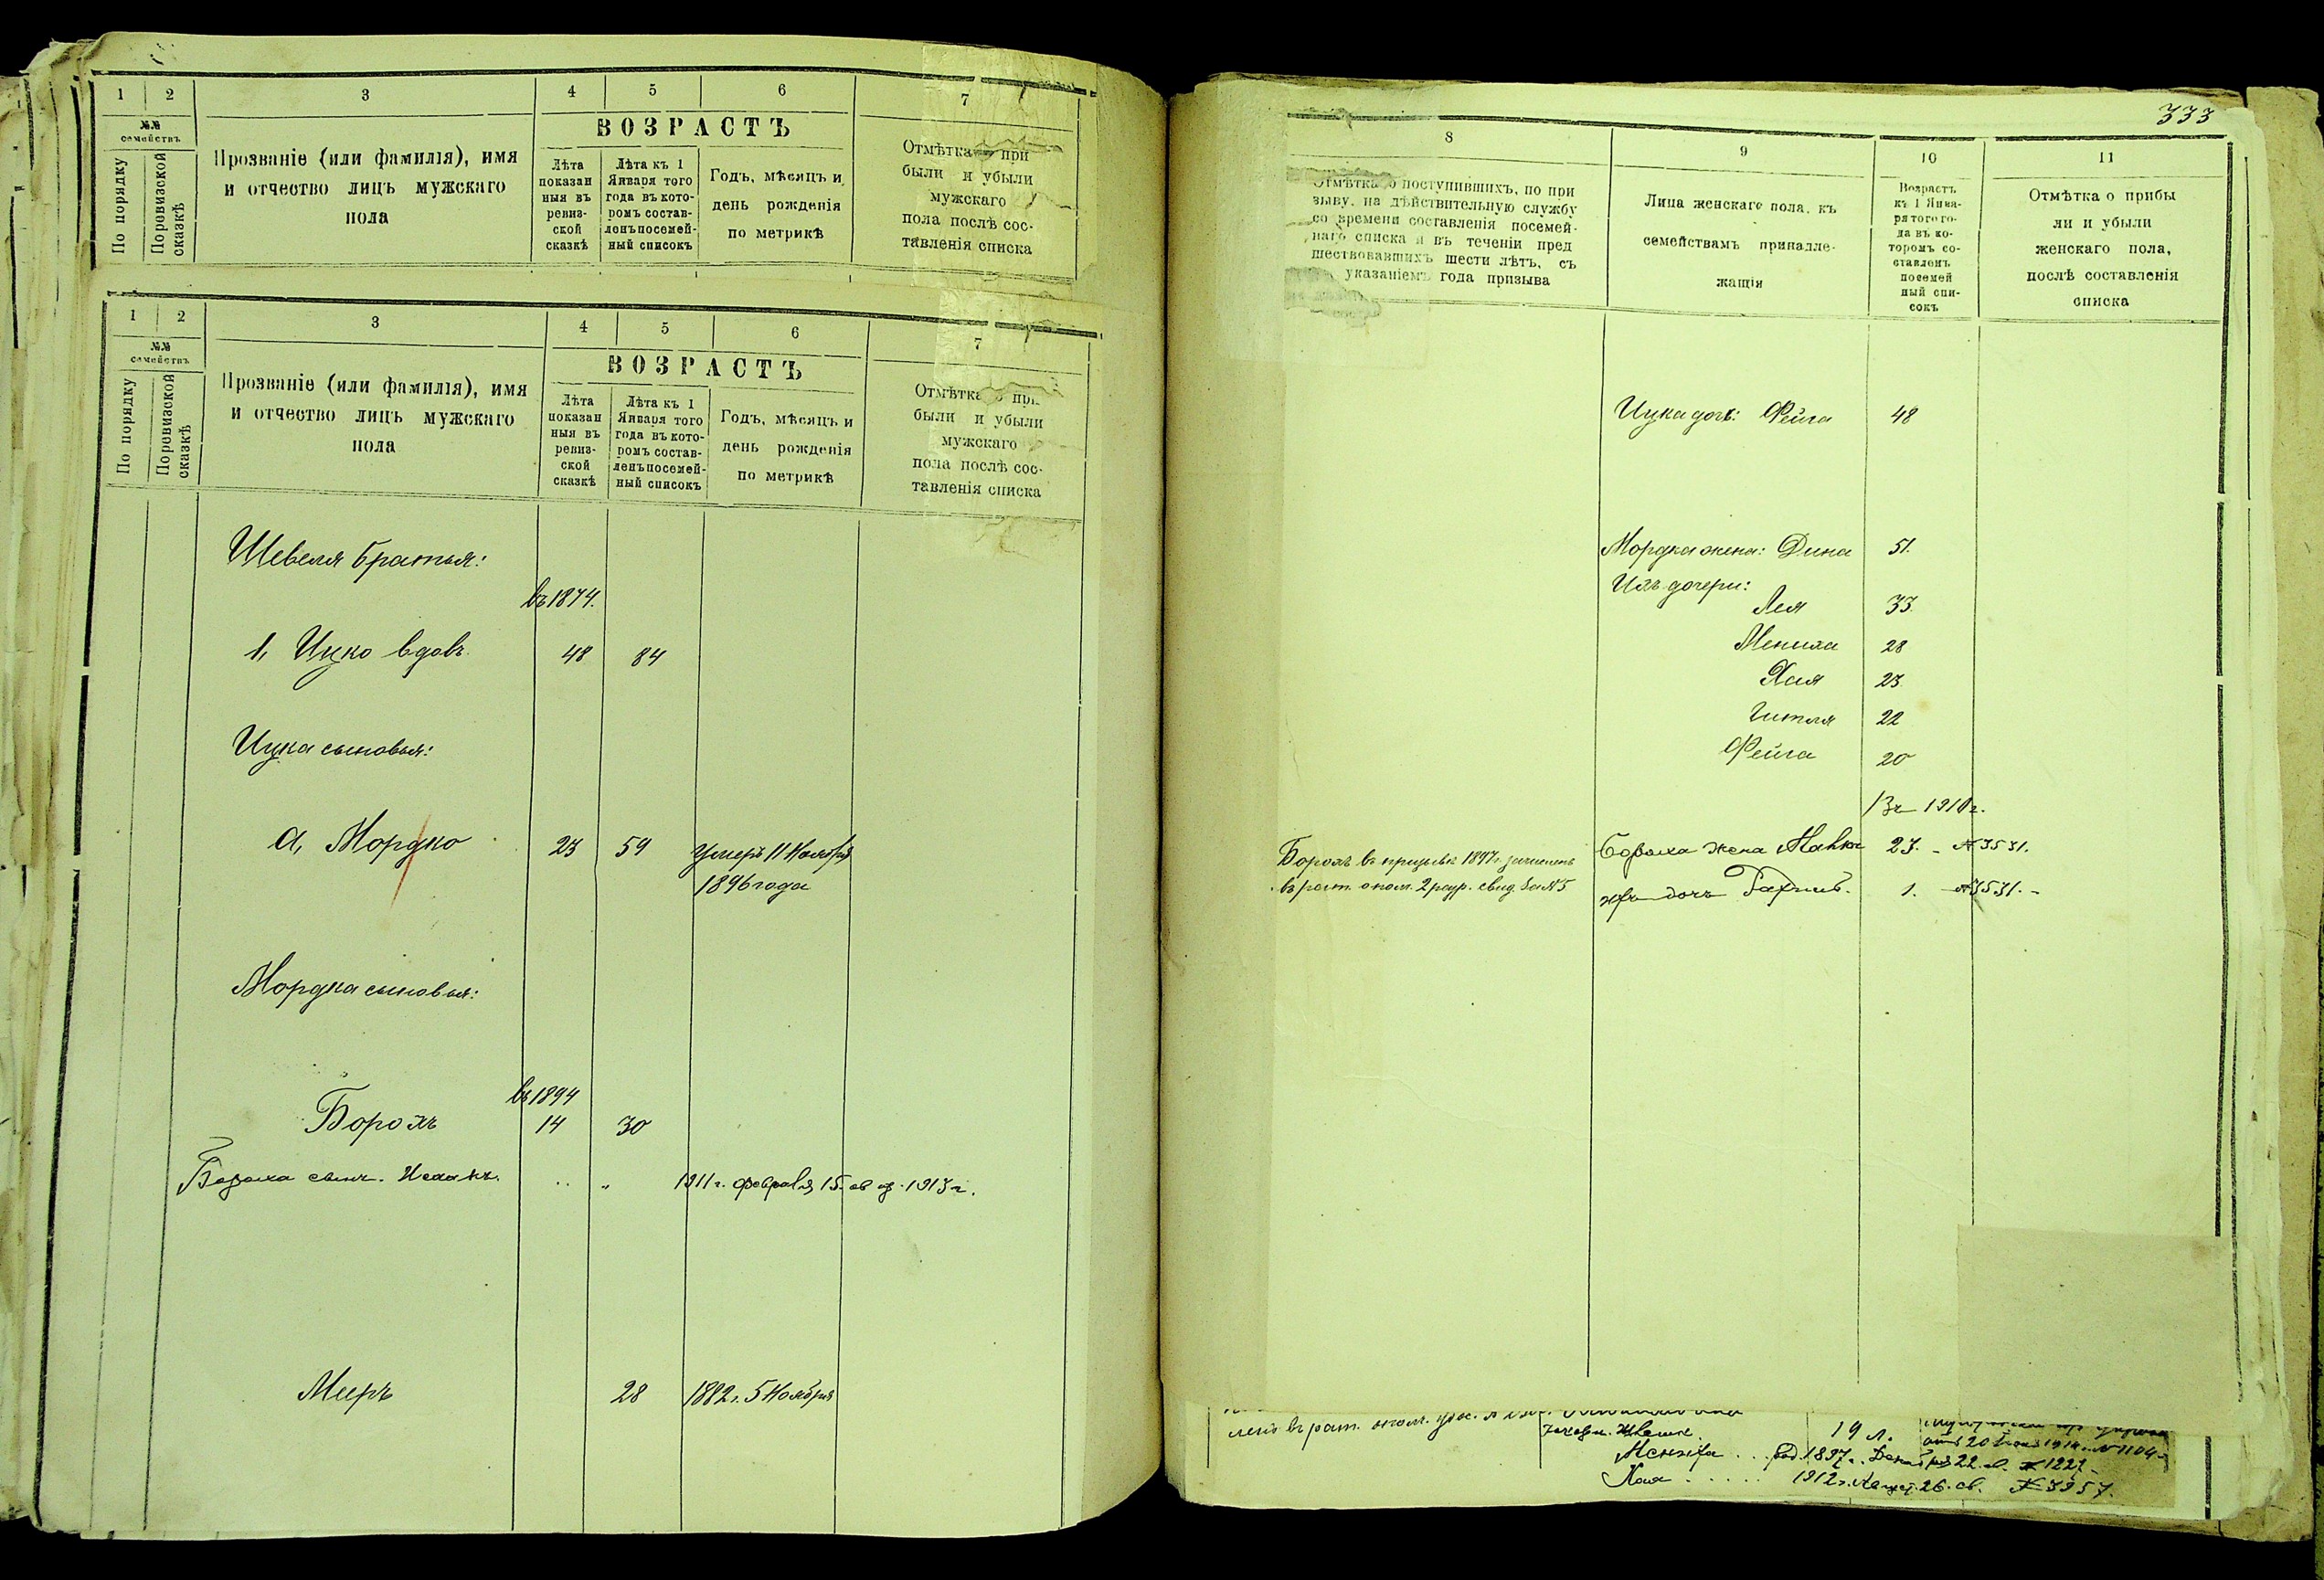 1 2 3 4 5 6 7
№№ семействъ
По порядку
По ревизской сказкѣ
Прозваніе (или фамилія), имя
и отчество лицъ мужскаго
пола
ВОЗРАСТЪ
Лѣта
показан
ныя въ
ревиз-
ской
сказкѣ
Лѣта къ 1
Января того
года въ кото-
ромъ состав-
ленъ посемей-
ный списокъ
Годъ, мѣсяцъ и
день рожденія
по метрикѣ
Отмѣтка о при
были и убыли
мужскаго
пола послѣ сос-
тавленія списка
1 2 3 4 5 6 7
№№ семействъ
По порядку
По ревизской сказкѣ
Прозваніе (или фамилія), имя
и отчество лицъ мужскаго
пола
ВОЗРАСТЪ
Лѣта
показан
ныя въ
ревиз-
ской
сказкѣ
Лѣта къ 1
Января того
года въ кото-
ромъ состав-
ленъ посемей-
ный списокъ
Годъ, мѣсяцъ и
день рожденія
по метрикѣ
Отмѣтка о при
были и убыли
мужскаго
пола послѣ сос-
тавленія списка
Шевеля братья:
въ 1874.
1, Ицко вдовъ 48 84
Ицка сыновья:
а, Мордко 23 59 умеръ 11 Ноября
1896 года
Мордка сыновья:
въ 1894
Борохъ 14 30
Бороха сынъ. Исаакъ. 1911 г. февраля 15. 1913 г.
Меиръ 28 1882 г. 5 Ноября
333
8 9 10 11
Отмѣтка о поступившихъ, по при
зыву, на дѣйствительную службу
со времени составленія посемей-
наго списка и въ теченіи пред
шествовавшихъ шести лѣтъ, съ
указаніемъ года призыва
Лица женскаго пола, къ
семействамъ принадле-
жащія
Возрастъ
къ 1 Янва-
ря того го-
да въ ко-
торомъ со-
ставленъ
посемей
ный спи-
сокъ
Отмѣтка о прибы
ли и убыли
женскаго пола,
послѣ составленія
списка
Ицка дочь: Фейга 48
Мордка жена: Дина 51.
Ихъ дочери:
Лея 33
Мениха 28
Хая 23
Гитля 22
Фейга 20
Въ 1910 г.
Борохъ въ призывъ 1897 г. зачисленъ
въ рат. опол. 2 разр. свид. за №5
Бороха жена 23. - № 3531.
дочь 1. - № 3531. -
въ рат. опол.
19 л.
1912 г. 26. св. № 3957.